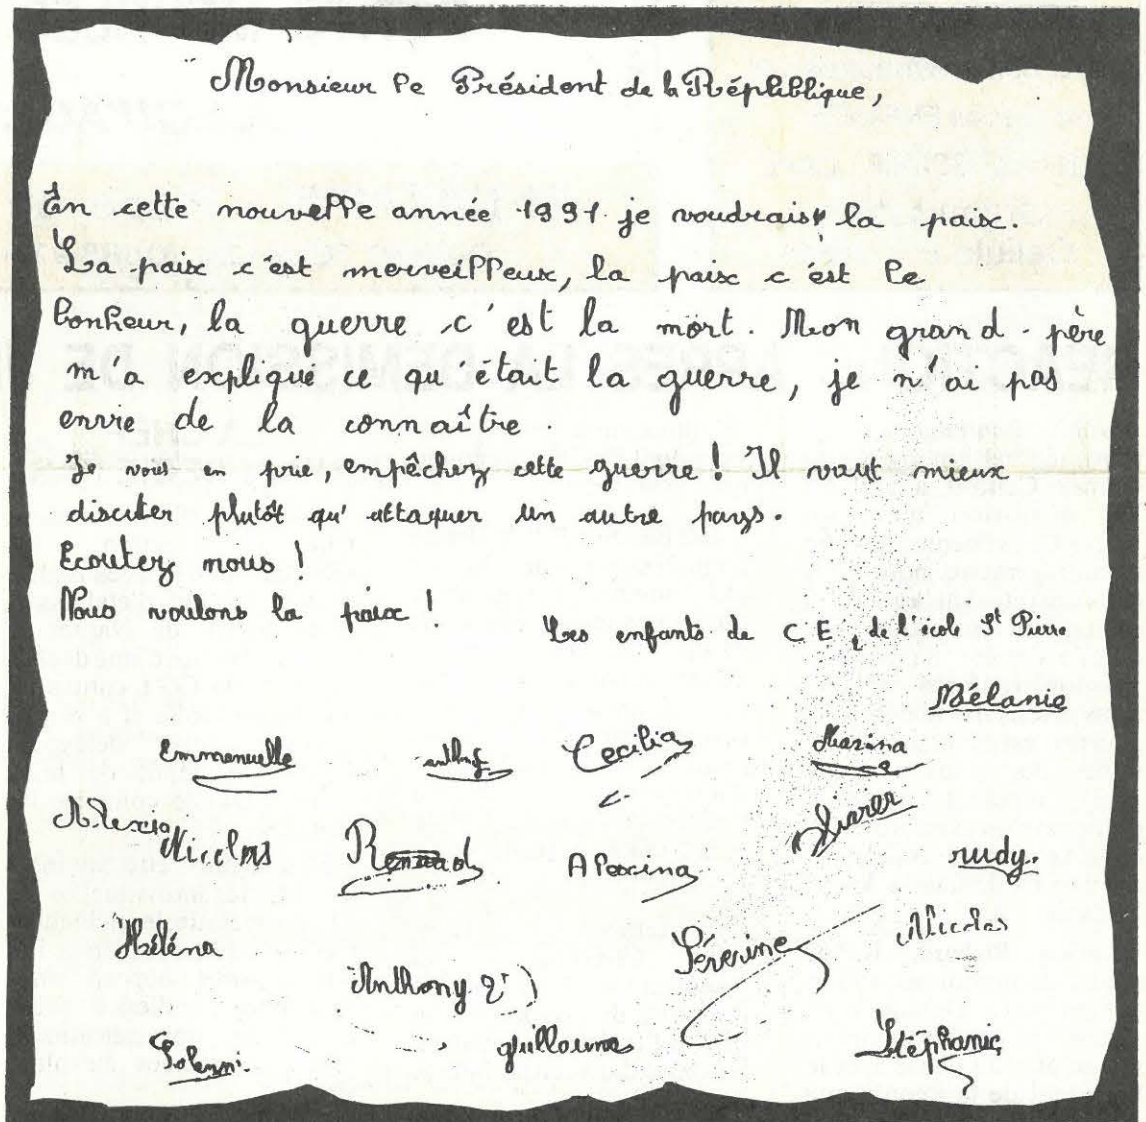 Monsieur le Président de la Républblique,
En cette nouvelle année 1991 je voudrais la paix.
La paix c'est merveilleux, la paix c'est le
bonheur, la guerre c'est la mort. Mon grand-père
m'a expliqué ce qu'était la guerre, je n'ai pas
envie de la connaître.
Je vous en prie, empêchez cette guerre! Il vaut mieux
discuter plutôt qu'attaquer un autre pays.
Ecoutez nous!
Nous voulons la paix!
Les enfants de CE1 de l'école St Pierre
Mélanie
Emmanuelle Cecilia Marina
Alexia Nicolas Renaud Alexina rudy.
Héléna Séverine Nicolas
Anthony
guillaume Stéphanie